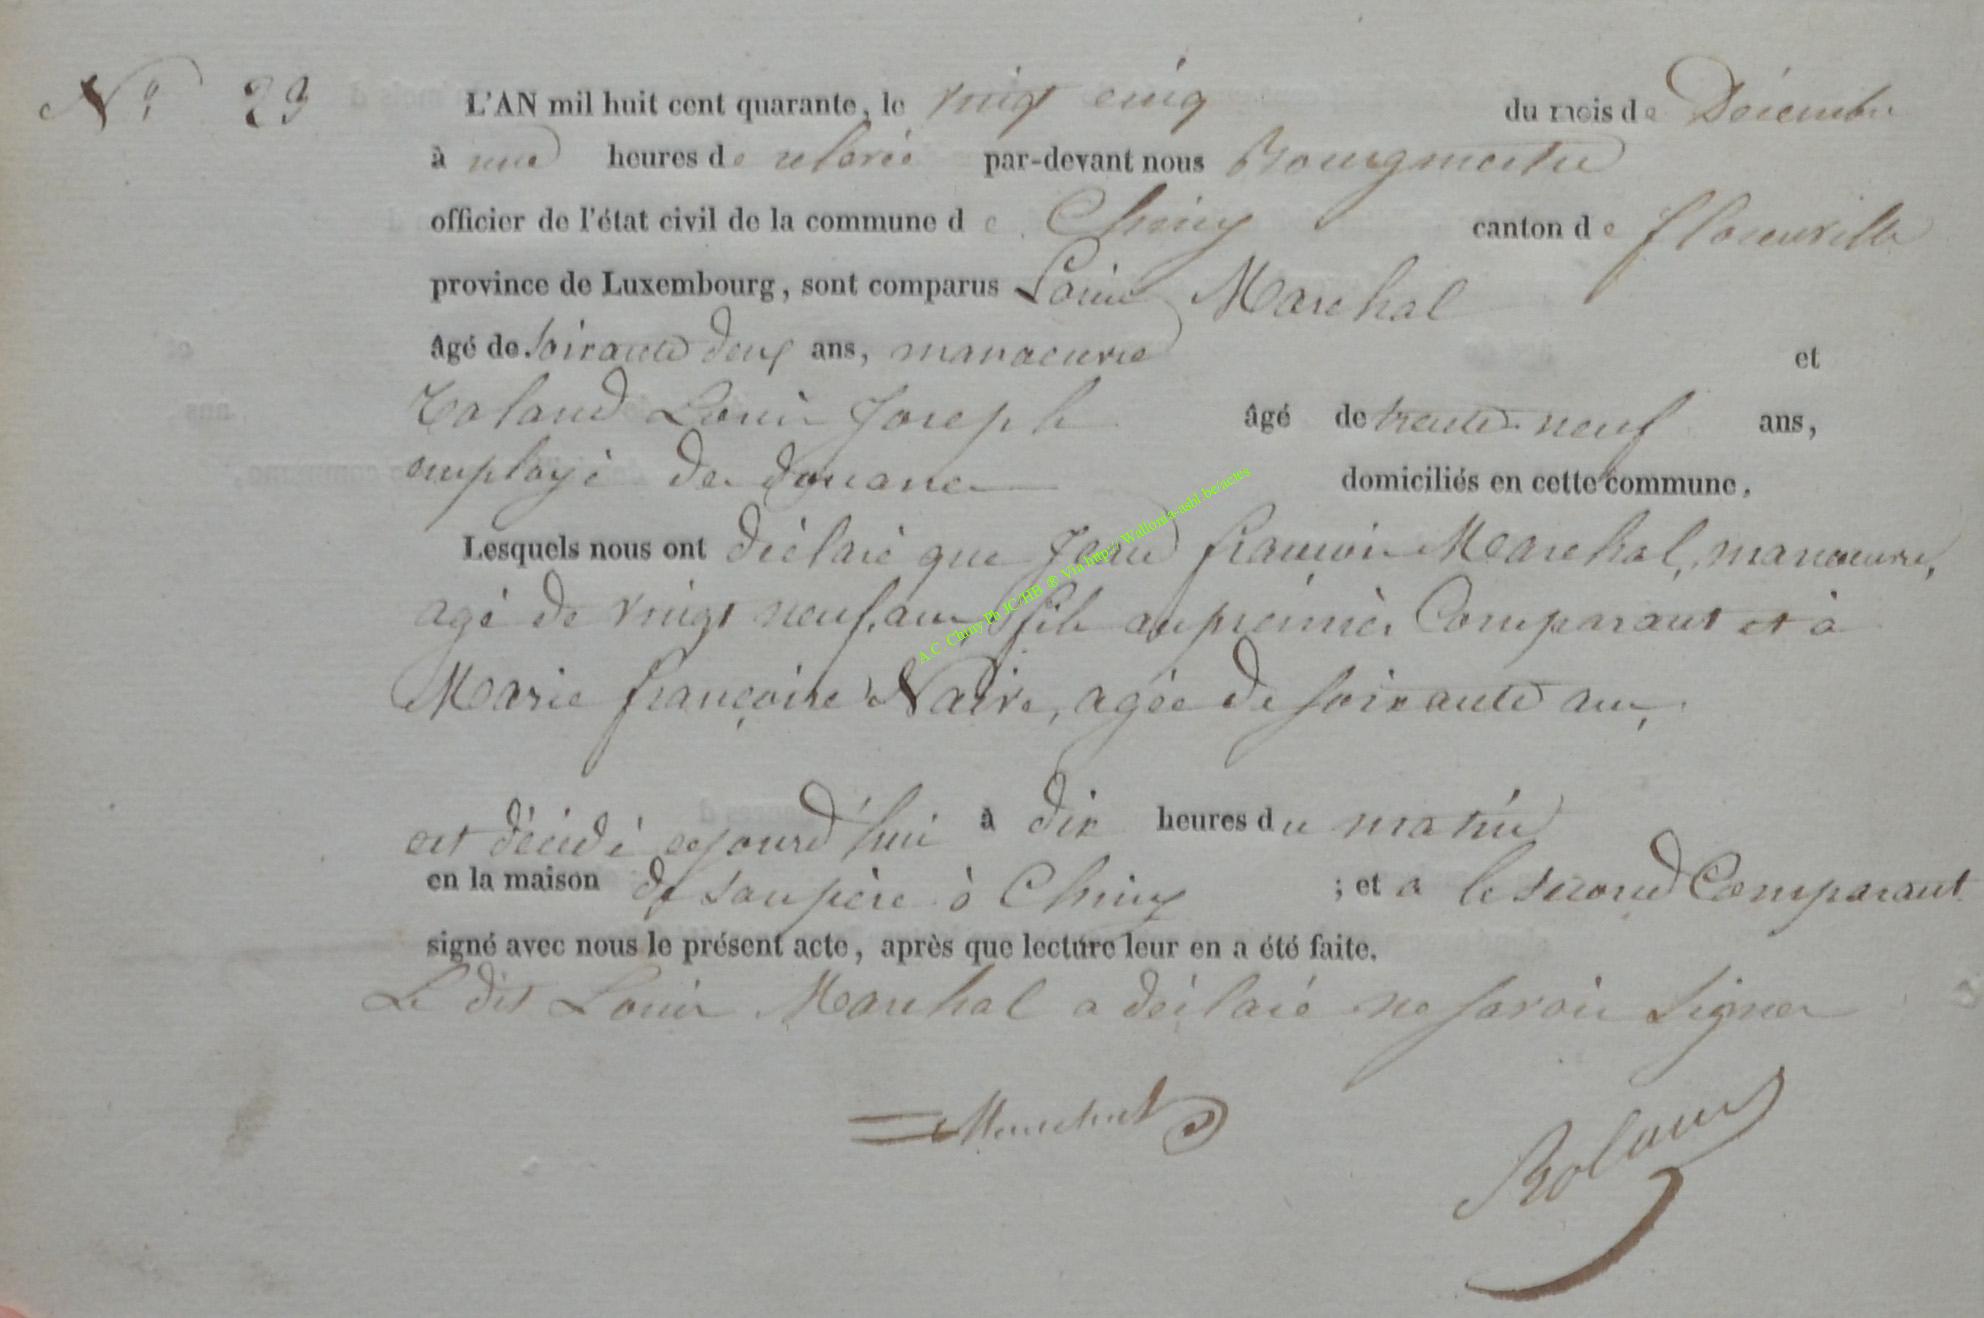 N° 29
L'AN mil huit cent quarante, le vingt cinq du mois de Décembre
à une heures de relevée par-devant nous Bourgmestre
officier de l'état civil de la commune de Chiny canton de florenville
province de Luxembourg, sont comparus Louis Marchal
âgé de soixante deux ans, manoeuvre et
Roland Louis Joseph âgé de trente neuf ans,
employé des douanes domiciliés en cette commune,
Lesquels nous ont déclaré que Jean françois Marchal, manoeuvre,
agé de vingt neuf ans, fils au premier Comparant et à
Marie françoise Naive, agée de soixante ans,
est décédé cejourd'hui à dix heures du matin
en la maison de son père à Chiny ; et a le second Comparant
signé avec nous le présent acte, après que lecture leur en a été faite.
Le dit Louis Marchal a déclaré ne savoir signer
Roland
A.C. Chiny Ph JC/HB ® Via http://Wallonia-asbl.be/actes